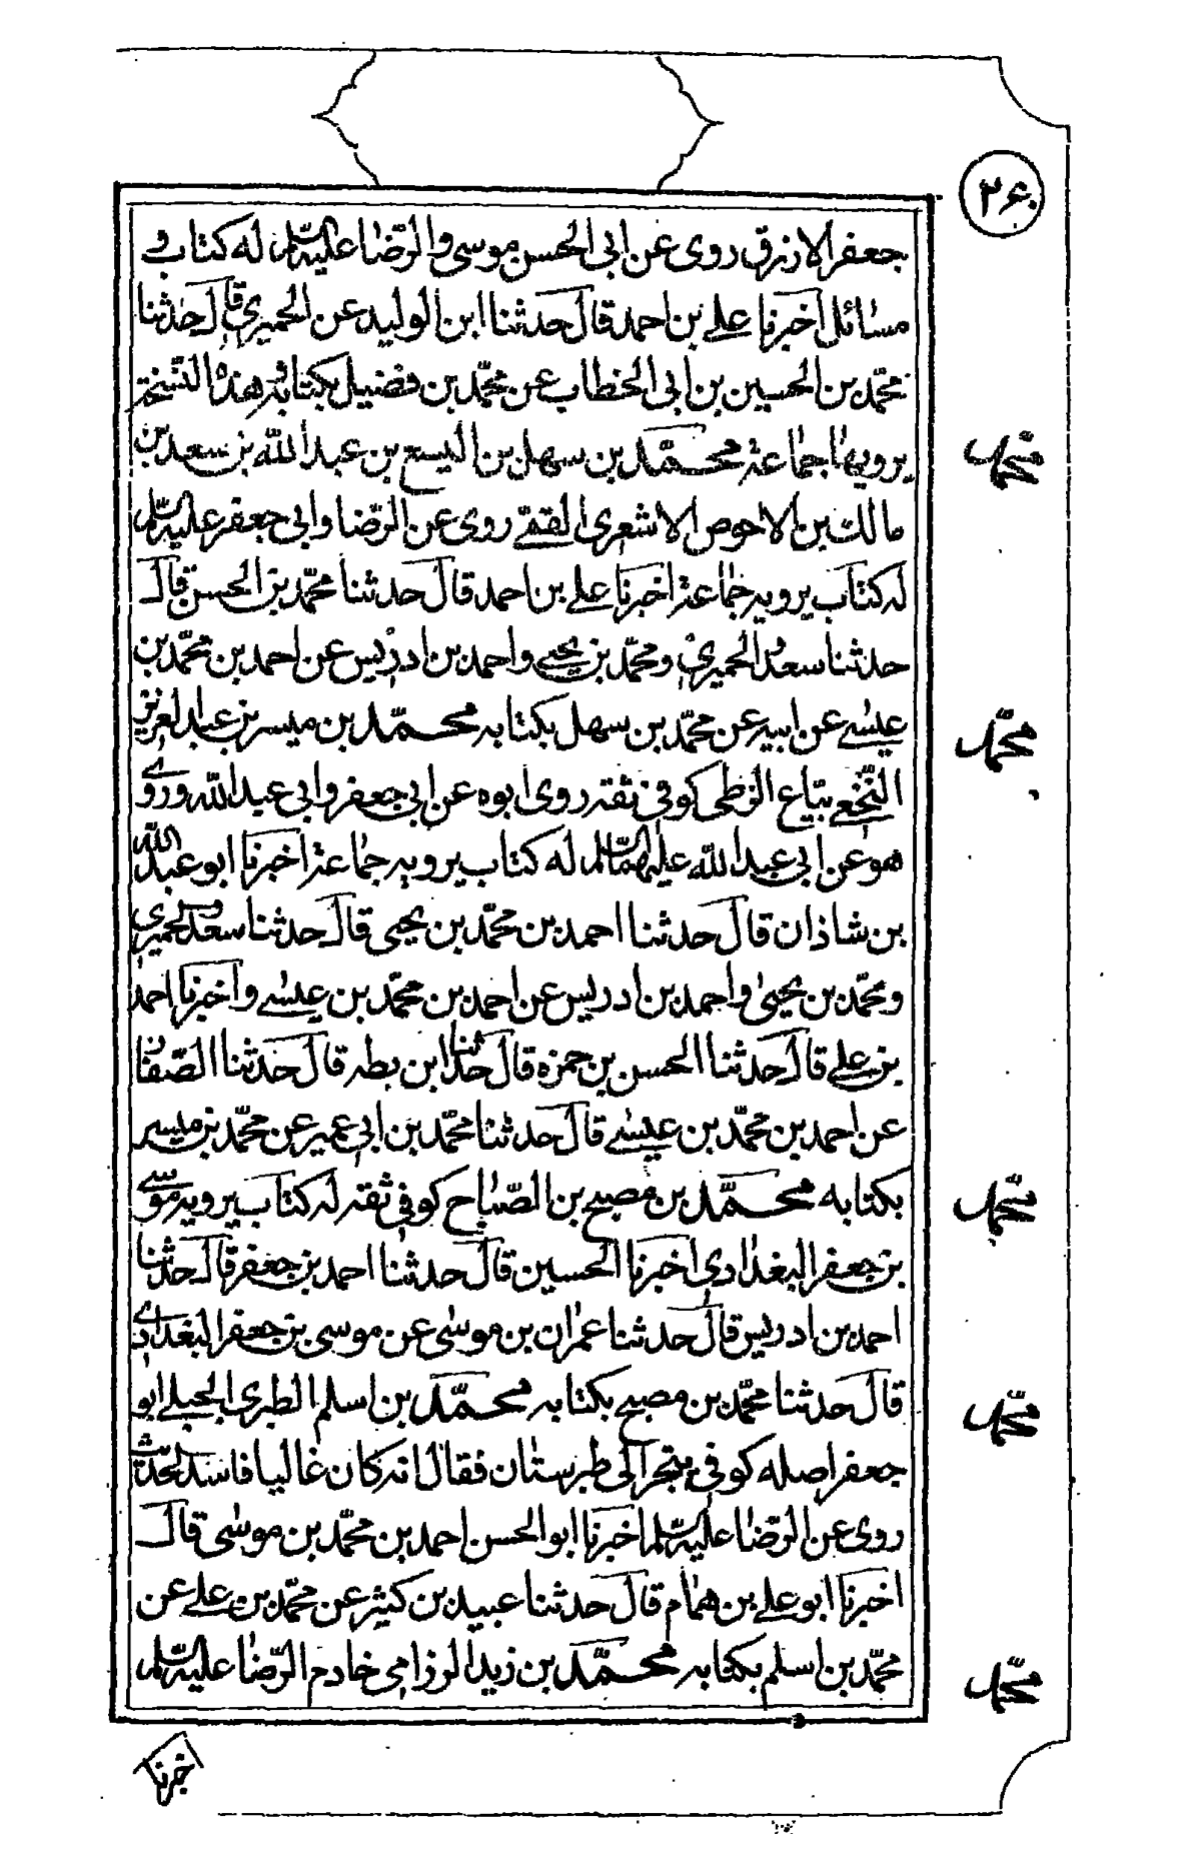 ۲۶۰
جعفر الازرق روى عن ابى الحسن موسى والرّضا عليه السّلم له كتاب و
مسائل اخبرنا على بن احمد قال حدثنا ابن الوليد عن الحميري قال حدثنا
محمّد بن الحسين بن ابى الخطاب عن محمّد بن فضيل بكتابه وهذه النسخة
يرويها جماعة محمّد بن سهل بن اليسع بن عبد الله بن سعد بن
محمّد
مالك بن الاحوص الاشعرى القمّى روى عن الرّضا وابى جعفر عليه السّلم
له كتاب يرويه جماعة اخبرنا على بن احمد قال حدثنا محمّد بن الحسن قال
حدثنا سعد والحميرى ومحمّد بن يحيى واحمد بن ادريس عن احمد بن محمّد بن
عيسى عن ابيه عن محمّد بن سهل بكتابه محمّد بن ميسر بن عبد العزيز
محمّد
النّخعى بيّاع الزطى كوفى ثقة روى ابوه عن ابى جعفر وابى عبد الله وروى
هو عن ابى عبد الله عليهما السّلم له كتاب يرويه جماعة اخبرنا ابو عبد الله
بن شاذان قال حدثنا احمد بن محمّد بن يحيى قال حدثنا سعد والحميرى
ومحمّد بن يحيى واحمد بن ادريس عن احمد بن محمّد بن عيسى واخبرنا احمد
بن على قال حدثنا الحسن بن حمزه قال حدثنا ابن بطه قال حدثنا الصّفار
عن احمد بن محمّد بن عيسى قال حدثنا محمّد بن ابى عمير عن محمّد بن ميسر
بكتابه محمّد بن مصبح بن الصّباح كوفى ثقة له كتاب يرويه موسى
محمّد
بن جعفر البغدادى اخبرنا الحسين قال حدثنا احمد بن جعفر قال حدثنا
احمد بن ادريس قال حدثنا عمران بن موسى عن موسى بن جعفر البغدادى
قال حدثنا محمّد بن مصبح بكتابه محمّد بن اسلم الطبرى الجبلى ابو
محمّد
جعفر اصله كوفى يتجر الى طبرستان فقال انه كان غاليا فاسد الحديث
روى عن الرّضا عليه السّلم اخبرنا ابو الحسن احمد بن محمّد بن موسى قال
اخبرنا ابو على بن همام قال حدثنا عبيد بن كثير عن محمّد بن على عن
محمّد بن اسلم بكتابه محمّد بن زيد الرزامى خادم الرّضا عليه السّلم
محمّد
اخبرنا